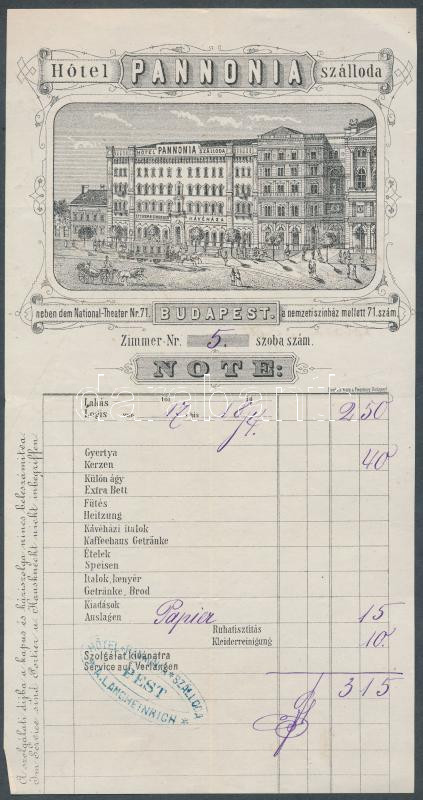 Hôtel PANNONIA szálloda
HÔTEL PANNONIA SZÁLLODA
KÁVÉHÁZA
neben dem National-Theater Nr. 71. BUDAPEST. a nemzeti színház mellett 71. szám.
Zimmer-Nr. 5. szoba szám.
NOTE:
Lakás
Logis vom 17 bis 18/4. 2 50
Gyertya
Kerzen 40
Külön ágy
Extra Bett
Fűtés
Heitzung
Kávéházi italok
Kaffeehaus Getränke
Ételek
Speisen
Italok, kenyér
Getränke, Brod
Kiadások
Auslagen Papier 15
Ruhatisztitás
Kleiderreinigung 10.
Szolgálat kivánatra
Service auf Verlangen
3 15
HÔTEL PANNONIA SZÁLLODA
PEST
LANGHEINRICH
A szolgálati dijba a kapus és háziszolga nincs beleszámitva.
Im Service sind Portier u. Hausknecht nicht inbegriffen.
darabanth.com